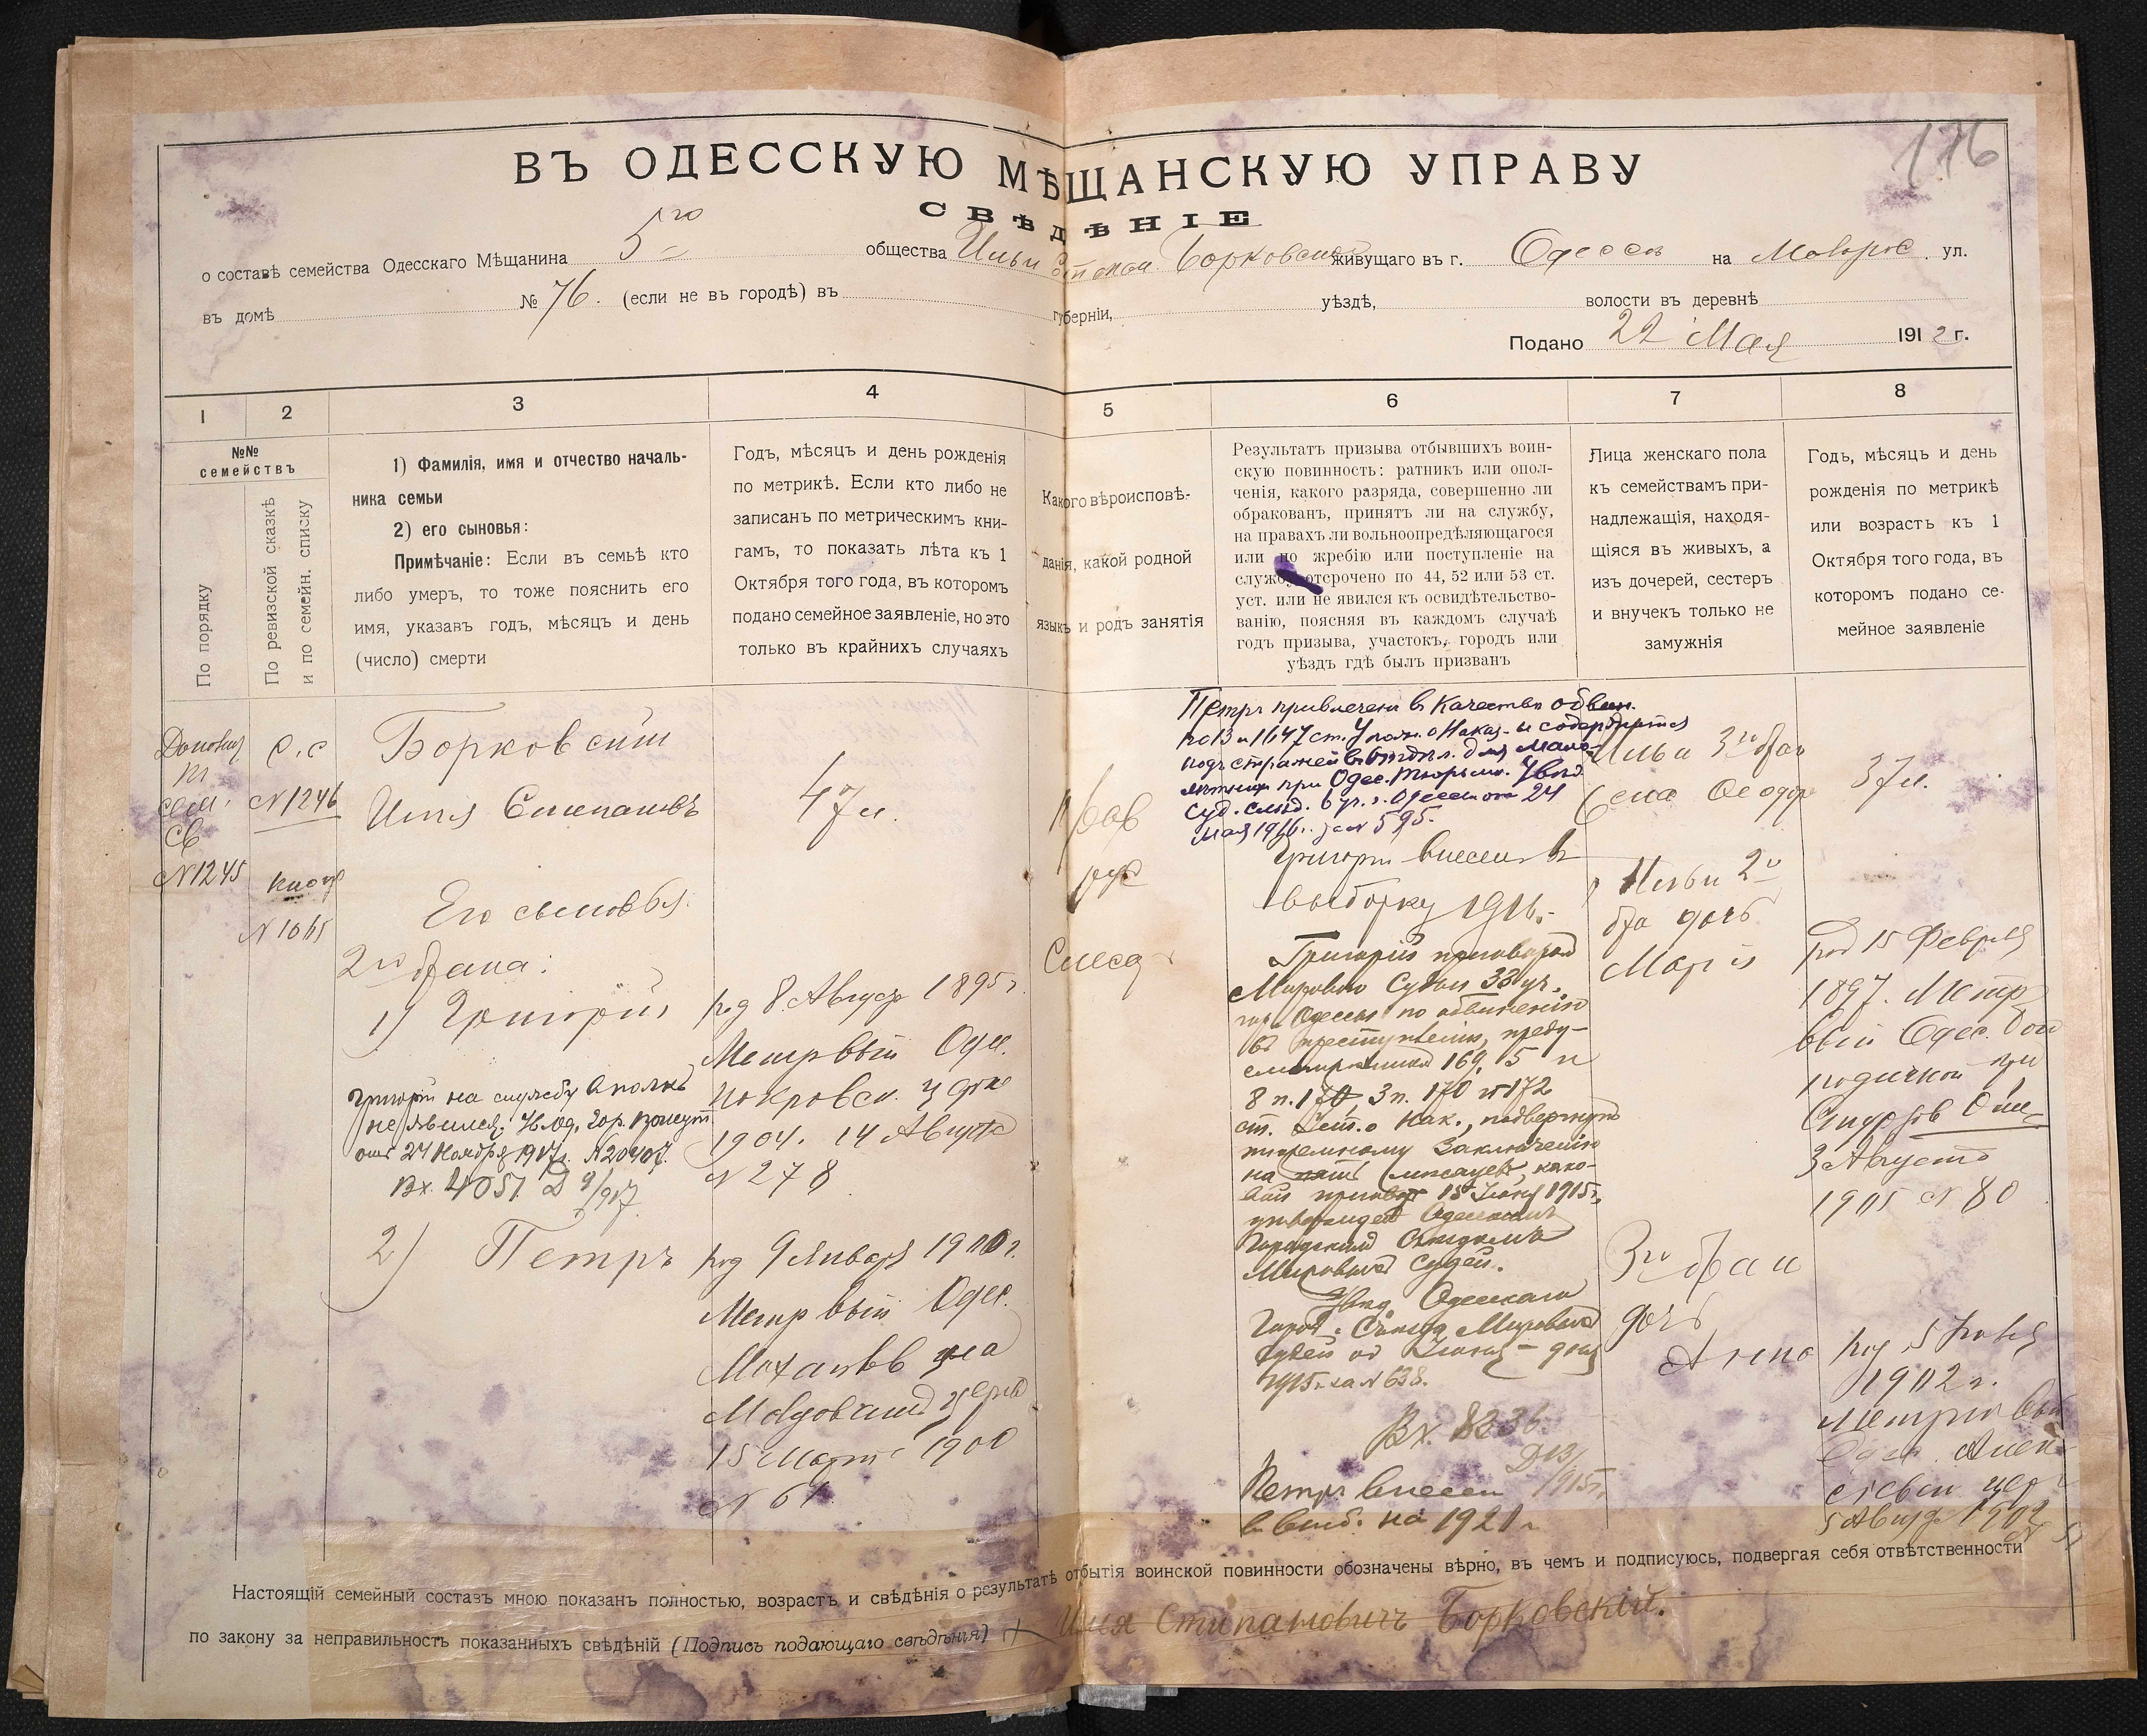 176
ВЪ ОДЕССКУЮ МѢЩАНСКУЮ УПРАВУ
СВѢДѢНІЕ
о составѣ семейства Одесскаго Мѣщанина 5го общества Ильи Степан. Борковскаго живущаго въ г. Одессѣ на ул.
въ домѣ № 76. (если не въ городѣ) въ губерніи, уѣздѣ, волости въ деревнѣ
Подано 22 Мая 1912 г.
1
2
3
4
5
6
7
8
№№
семействъ
По порядку
По ревизской сказкѣ
и по семейн. списку
1) Фамилія, имя и отчество началь-
ника семьи
2) его сыновья:
Примѣчаніе: Если въ семьѣ кто
либо умеръ, то тоже пояснить его
имя, указавъ годъ, мѣсяцъ и день
(число) смерти
Годъ, мѣсяцъ и день рожденія
по метрикѣ. Если кто либо не
записанъ по метрическимъ кни-
гамъ, то показать лѣта къ 1
Октября того года, въ которомъ
подано семейное заявленіе, но это
только въ крайнихъ случаяхъ
Какого вѣроисповѣ-
данія, какой родной
языкъ и родъ занятія
Результатъ призыва отбывшихъ воин-
скую повинность: ратникъ или опол-
ченія, какого разряда, совершенно ли
обракованъ, принятъ ли на службу,
на правахъ ли вольноопредѣляющагося
или по жребію или поступленіе на
службу отсрочено по 44, 52 или 53 ст.
уст. или не явился къ освидѣтельство-
ванію, поясняя въ каждомъ случаѣ
годъ призыва, участокъ, городъ или
уѣздъ гдѣ былъ призванъ
Лица женскаго пола
къ семействамъ при-
надлежащія, находя-
щіяся въ живыхъ, а
изъ дочерей, сестеръ
и внучекъ только не
замужнія
Годъ, мѣсяцъ и день
рожденія по метрикѣ
или возрастъ къ 1
Октября того года, въ
которомъ подано се-
мейное заявленіе
сем.
св
№1245
с.с
№1246
№1065
Борковскій
Илья Степановъ
Его сыновья:
2го брака:
1) Григорій
Григорій на службу
не явился.
отъ 24 Ноября 1917г. №20407.
Вх. 4051. Д 9/917
2) Петръ
47 л.
род 8 Август 1895 г.
Метр вып Одес.
Покровск. церкв
1904. 14 Августа
№278
род 9 Января 1900 г.
Метр вып Одес.
15 Марта 1900
№ 61
прав
рус
Петръ привлеченъ в качествѣ обвин.
по 13 и 1647 ст. Улож. о Наказ. и содержится
подъ стражей в отдѣл. для мало-
лѣтних при Одес. тюрьмѣ. Увѣд.
Суд. Слѣд. 6 уч. г. Одессы от 24
мая 1916 г. за № 595.
Григорій внесен в
выборку 1916.
Григорій приговором
Мирового Судьи 33 уч.
гор. Одессы по обвиненію
въ преступленіи, преду-
смотренном 169, 5 и
8 п. 170, 3 п. 170 и 172
ст. Уст. о Нак., подвергнут
тюремному заключенію
на мѣсяцев, како-
вой приговор 15 Іюня 1915 г.
утвержден Одесским
Городским Съѣздомъ
Мировых Судей.
Увѣд. Одесскаго
Город. Съѣзда Мировых
Судей от Іюня дня
1915 г. за № 638.
Вх. 8236.
Д 13/915 г.
Петръ внесен
в выб. на 1921 г.
Ильи 3го бра
жена Ѳеодор
Ильи 2го
бра дочь
Марія
3го брак
дочь
Анна
37 л.
род 15 Февраля
1897. Метр
3 Августа
1905 №80
род 5
1902 г.
метрик вып
5 Август 1902
Настоящій семейный составъ мною показанъ полностью, возрастъ и свѣдѣнія о результатѣ отбытія воинской повинности обозначены вѣрно, въ чемъ и подписуюсь, подвергая себя отвѣтственности
по закону за неправильность показанныхъ свѣдѣній (Подпись подающаго свѣдѣнія) Илия Стипановичъ Борковский.